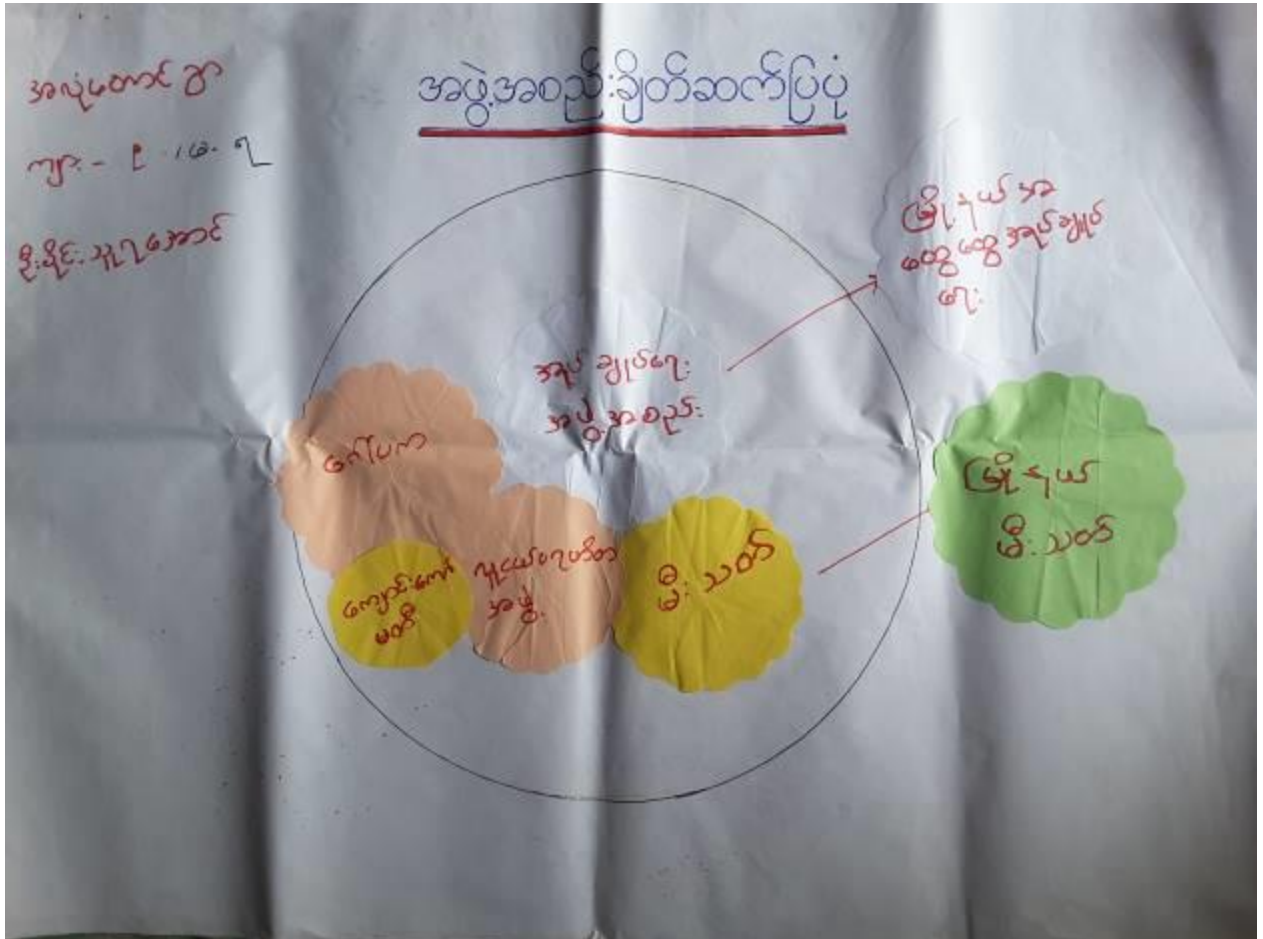 အလုံတောင် ရွာ
ကျား - ၉ ၊ မ - ၇
ဦးခိုင်းသူရအောင်
အဖွဲ့အစည်းချိတ်ဆက်ပြပုံ
မြို့နယ် အ
ထွေထွေအုပ်ချုပ်
ရေး
အုပ်ချုပ်ရေး
အဖွဲ့အစည်း
ဂေါပက
ကျောင်းကော်
မတီ
လူငယ်ပရဟိတ
အဖွဲ့
မီးသတ်
မြို့နယ်
မီးသတ်